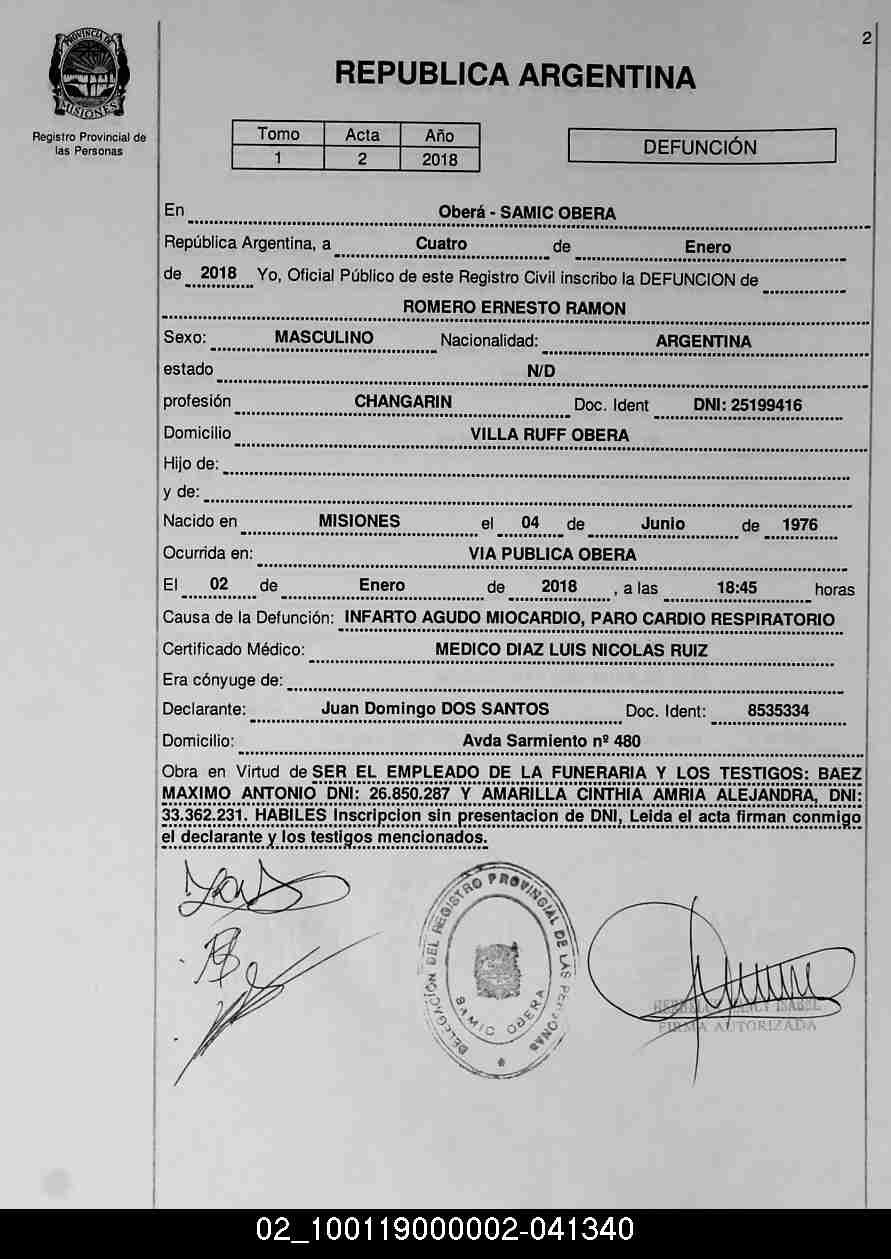 2
PROVINCIA DE
MISIONES
Registro Provincial de
las Personas
REPUBLICA ARGENTINA
Tomo Acta Año
1 2 2018
DEFUNCIÓN
En Oberá - SAMIC OBERA
República Argentina, a Cuatro de Enero
de 2018 Yo, Oficial Público de este Registro Civil inscribo la DEFUNCION de
ROMERO ERNESTO RAMON
Sexo: MASCULINO Nacionalidad: ARGENTINA
estado N/D
profesión CHANGARIN Doc. Ident DNI: 25199416
Domicilio VILLA RUFF OBERA
Hijo de:
y de:
Nacido en MISIONES el 04 de Junio de 1976
Ocurrida en: VIA PUBLICA OBERA
El 02 de Enero de 2018 , a las 18:45 horas
Causa de la Defunción: INFARTO AGUDO MIOCARDIO, PARO CARDIO RESPIRATORIO
Certificado Médico: MEDICO DIAZ LUIS NICOLAS RUIZ
Era cónyuge de:
Declarante: Juan Domingo DOS SANTOS Doc. Ident: 8535334
Domicilio: Avda Sarmiento nº 480
Obra en Virtud de SER EL EMPLEADO DE LA FUNERARIA Y LOS TESTIGOS: BAEZ
MAXIMO ANTONIO DNI: 26.850.287 Y AMARILLA CINTHIA AMRIA ALEJANDRA, DNI:
33.362.231. HABILES Inscripcion sin presentacion de DNI, Leida el acta firman conmigo
el declarante y los testigos mencionados.
DELEGACIÓN DEL REGISTRO PROVINCIAL DE LAS PERSONAS
SAMIC OBERA
ISABEL
FIRMA AUTORIZADA
02_100119000002-041340